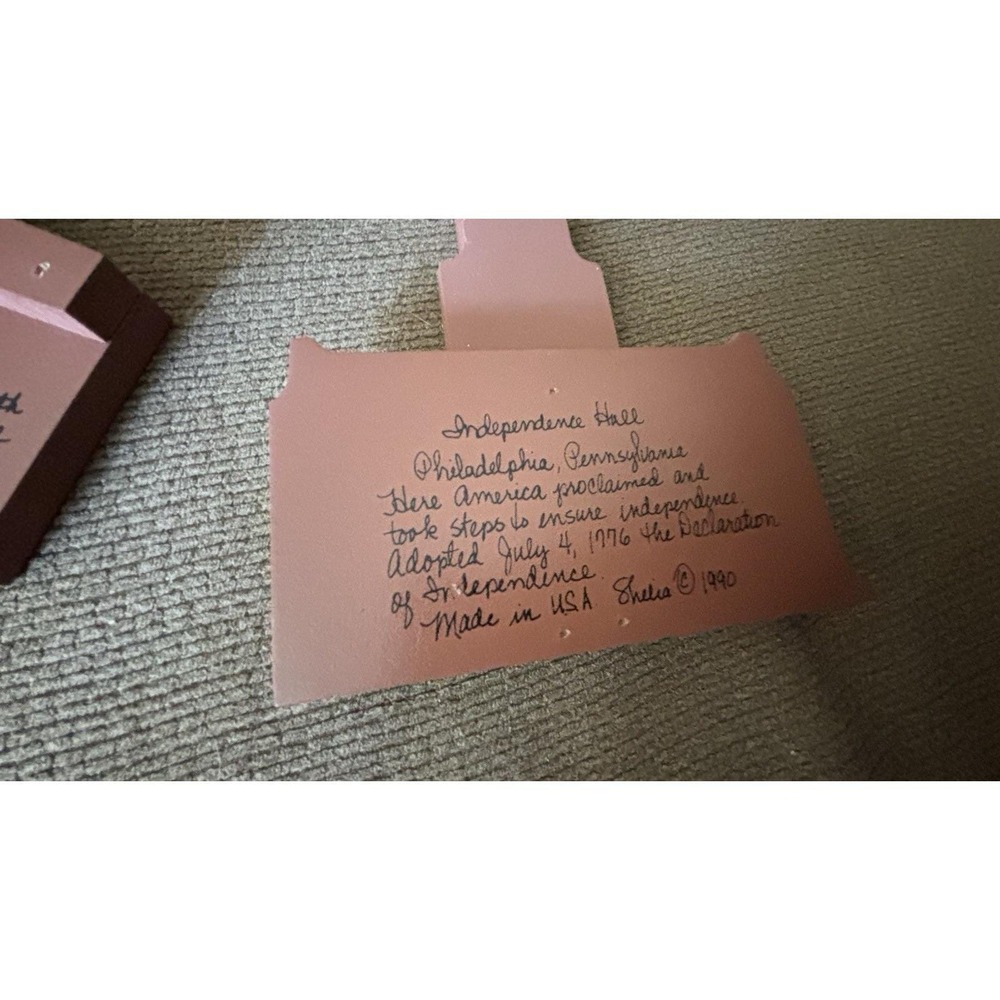 Independence Hall
Philadelphia, Pennsylvania
Here America proclaimed and
took steps to ensure independence.
Adopted July 4, 1776 the Declaration
of Independence.
Made in USA Shelia © 1990
th